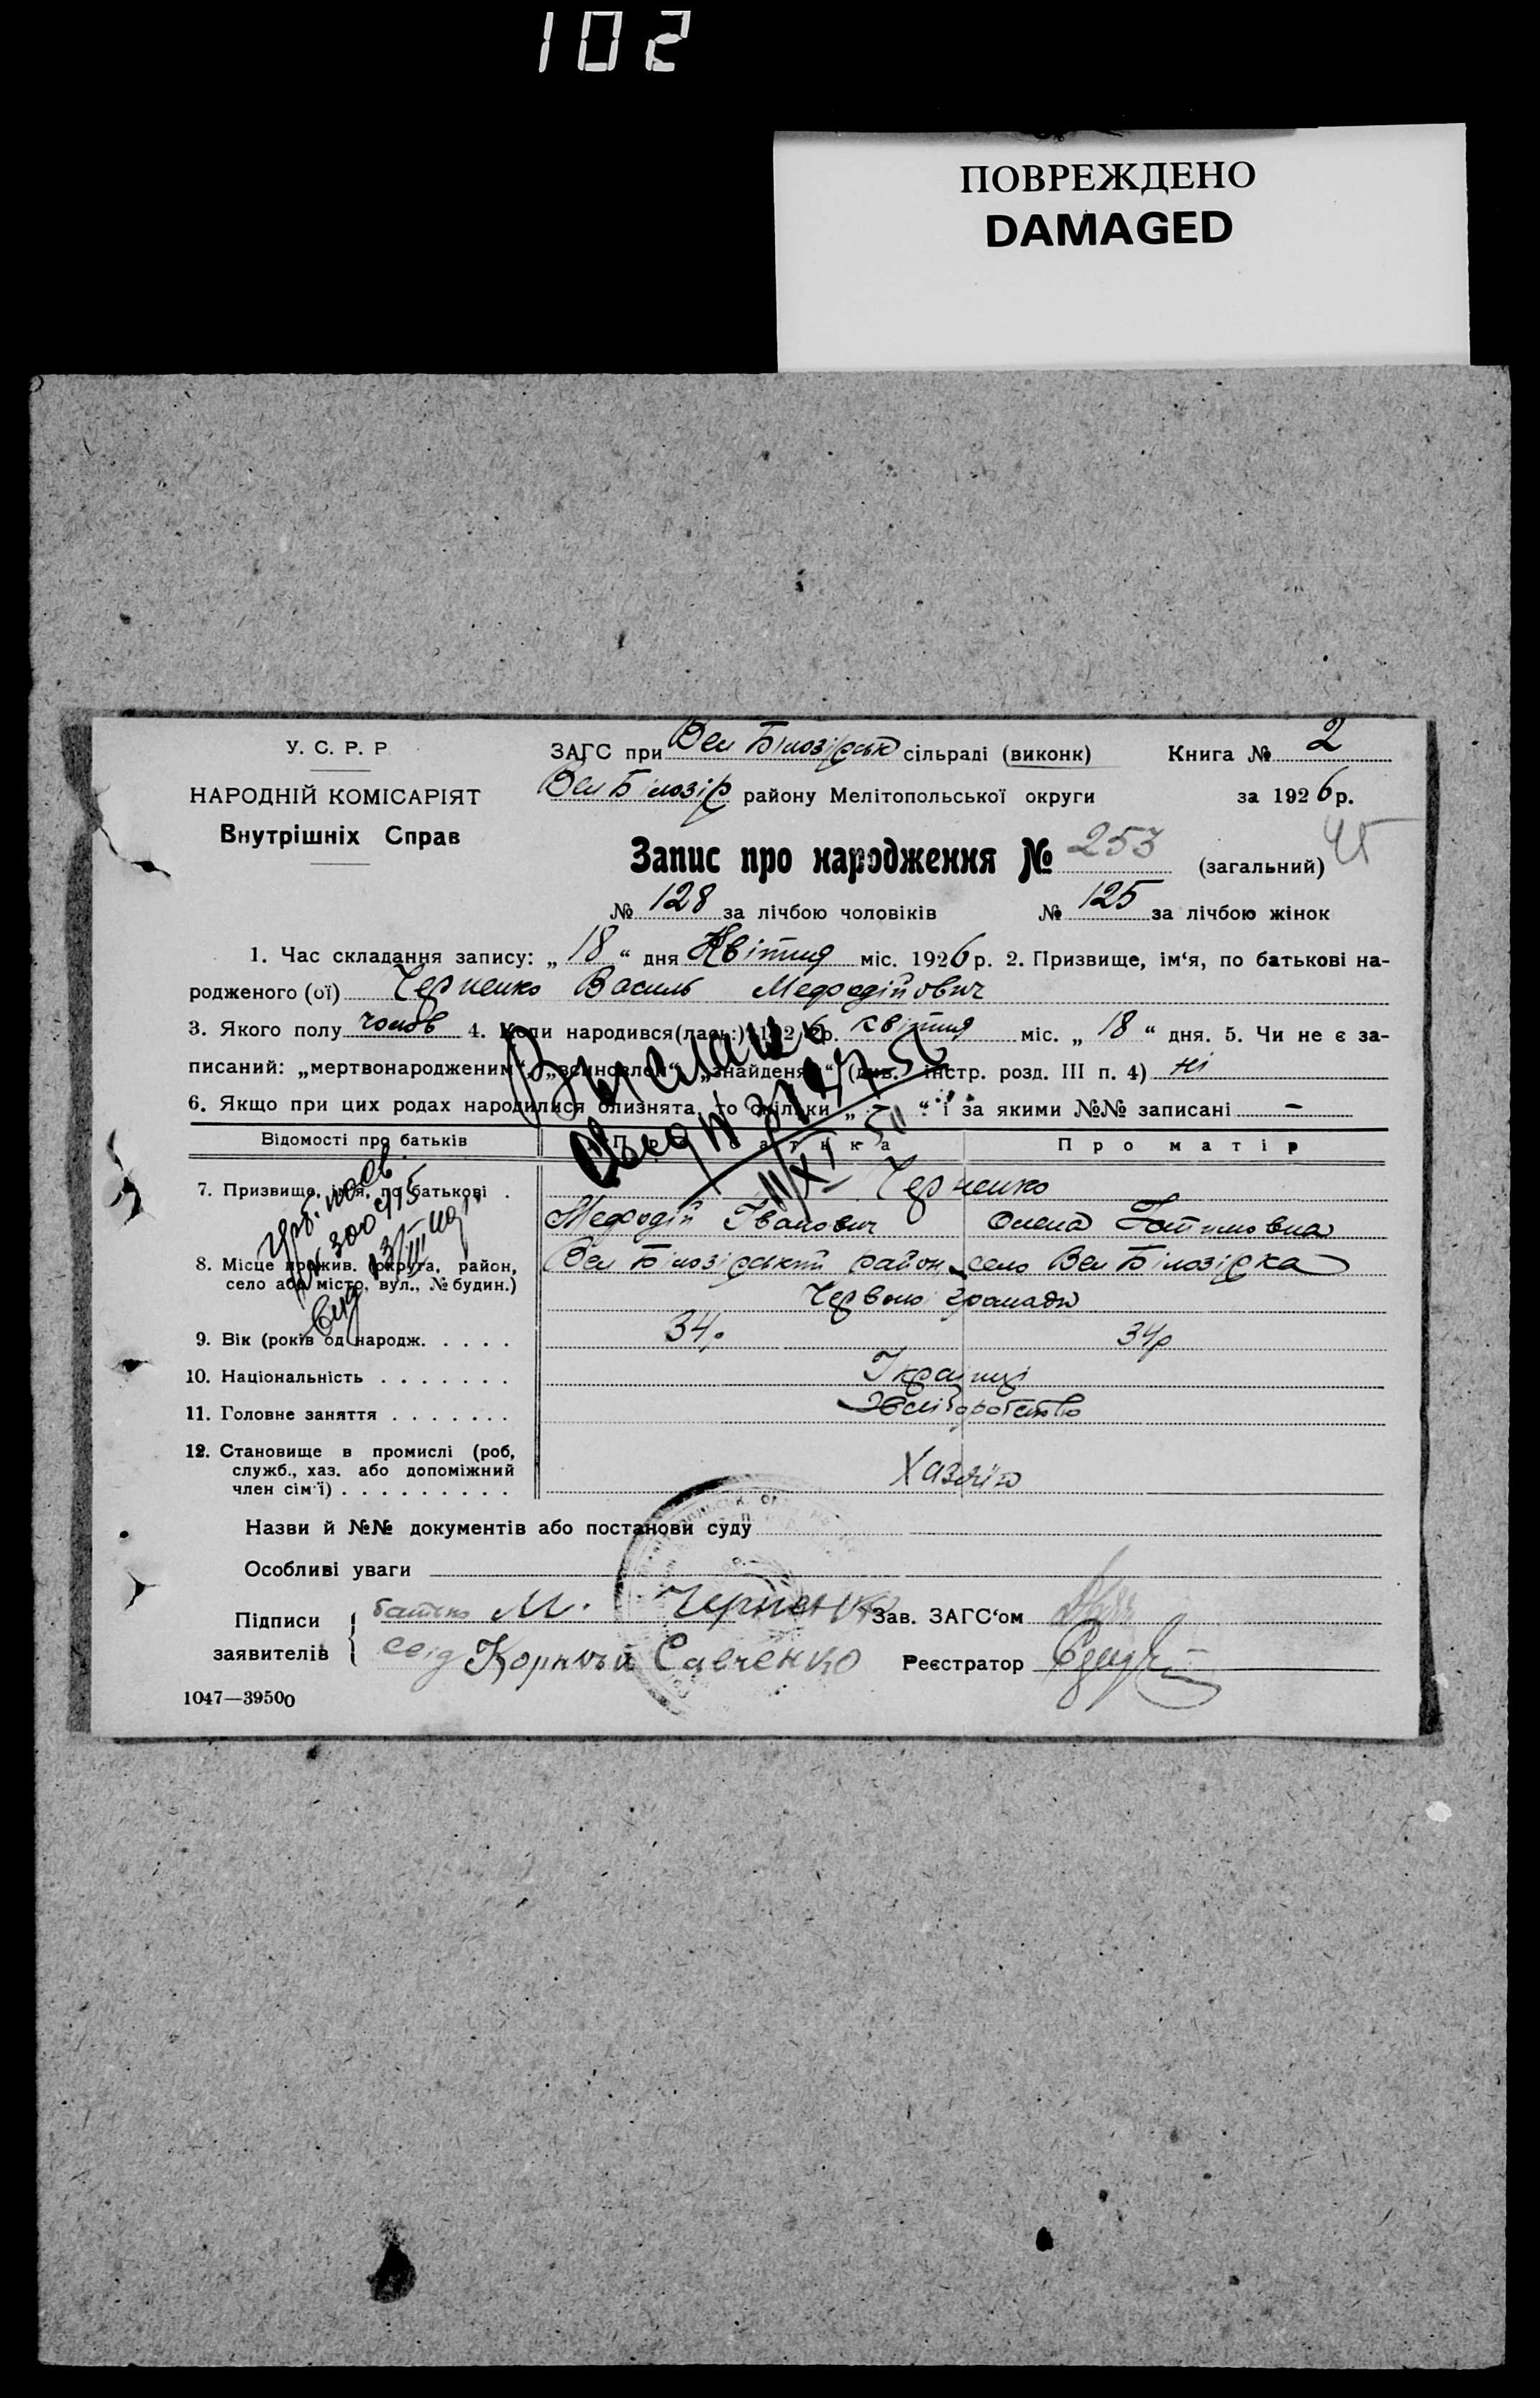 102
ПОВРЕЖДЕНО
DAMAGED
У. С. Р. Р.
НАРОДНІЙ КОМІСАРІЯТ
Внутрішніх Справ
ЗАГС при Вел Білозірськ сільраді (виконк) Книга № 2
Вел Білозір району Мелітопольської округи за 1926 р.
Запис про народження № 253 (загальний) 45
№ 128 за лічбою чоловіків № 125 за лічбою жінок
1. Час складання запису: „ 18 “ дня Квітня міс. 1926 р. 2. Призвище, ім‘я, по батькові на-
родженого (ої) Черненко Василь Мефодійович
3. Якого полу чолов 4. Коли народився(лась:) 1926 р. квітня міс. „ 18 “ дня. 5. Чи не є за-
писаний: „мертвонародженим“, „всиновлен“, „знайденям“ (див. інстр. розд. III п. 4) ні
6. Якщо при цих родах народилися близнята, то скільки „ - “ і за якими №№ записані -
Відомості про батьків Про батька Про матір
7. Призвище, ім‘я, по батькові . Черненко
Мефодій Іванович Олена
8. Місце прожив. (округа, район, село або місто, вул., № будин.) Вел Білозірський район село Вел Білозірка
Червоно громади
9. Вік (років од народж. . . . . 34р 34р
10. Національність . . . . . . . Українці
11. Головне заняття . . . . . . . Хліборобство
12. Становище в промислі (роб, служб., хаз. або допоміжний член сім‘ї) . . . . . . . . . Хазяїн
Назви й №№ документів або постанови суду
Особливі уваги
Підписи заявителів { батько М. Черненко Зав. ЗАГС‘ом
свід Корній Савченко Реєстратор
1047—39500